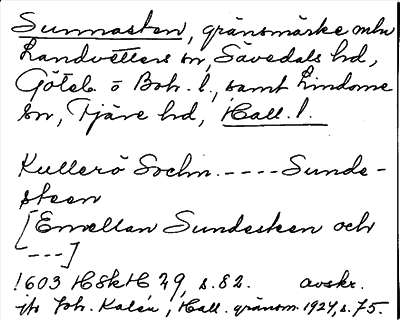 Sunnasten, gränsmärke mln
Landvetters sn, Sävedals hd,
Göteb o Boh. l., samt Lindome
sn, Fjäre hd, Hall. l.
Kullerö Sochn. ---- Sunde-
steen
[Emellan Sundesteen och
---]
1603 HSkH 29, s. 82. avskr.
Joh. Kalén, Hall. gränsm. 1924, s. 75.